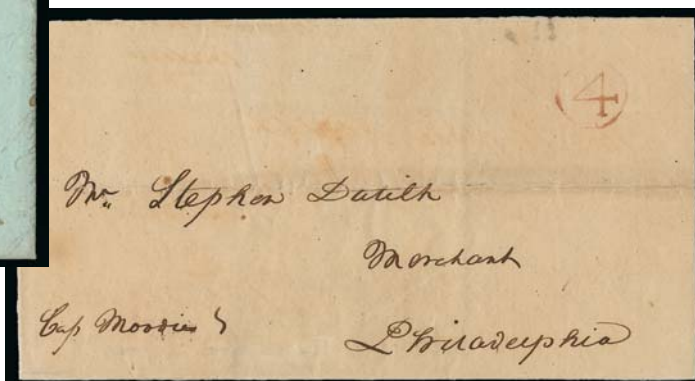 4
Mr. Stephen Dutilh
Merchant
Cap
Philadelphia